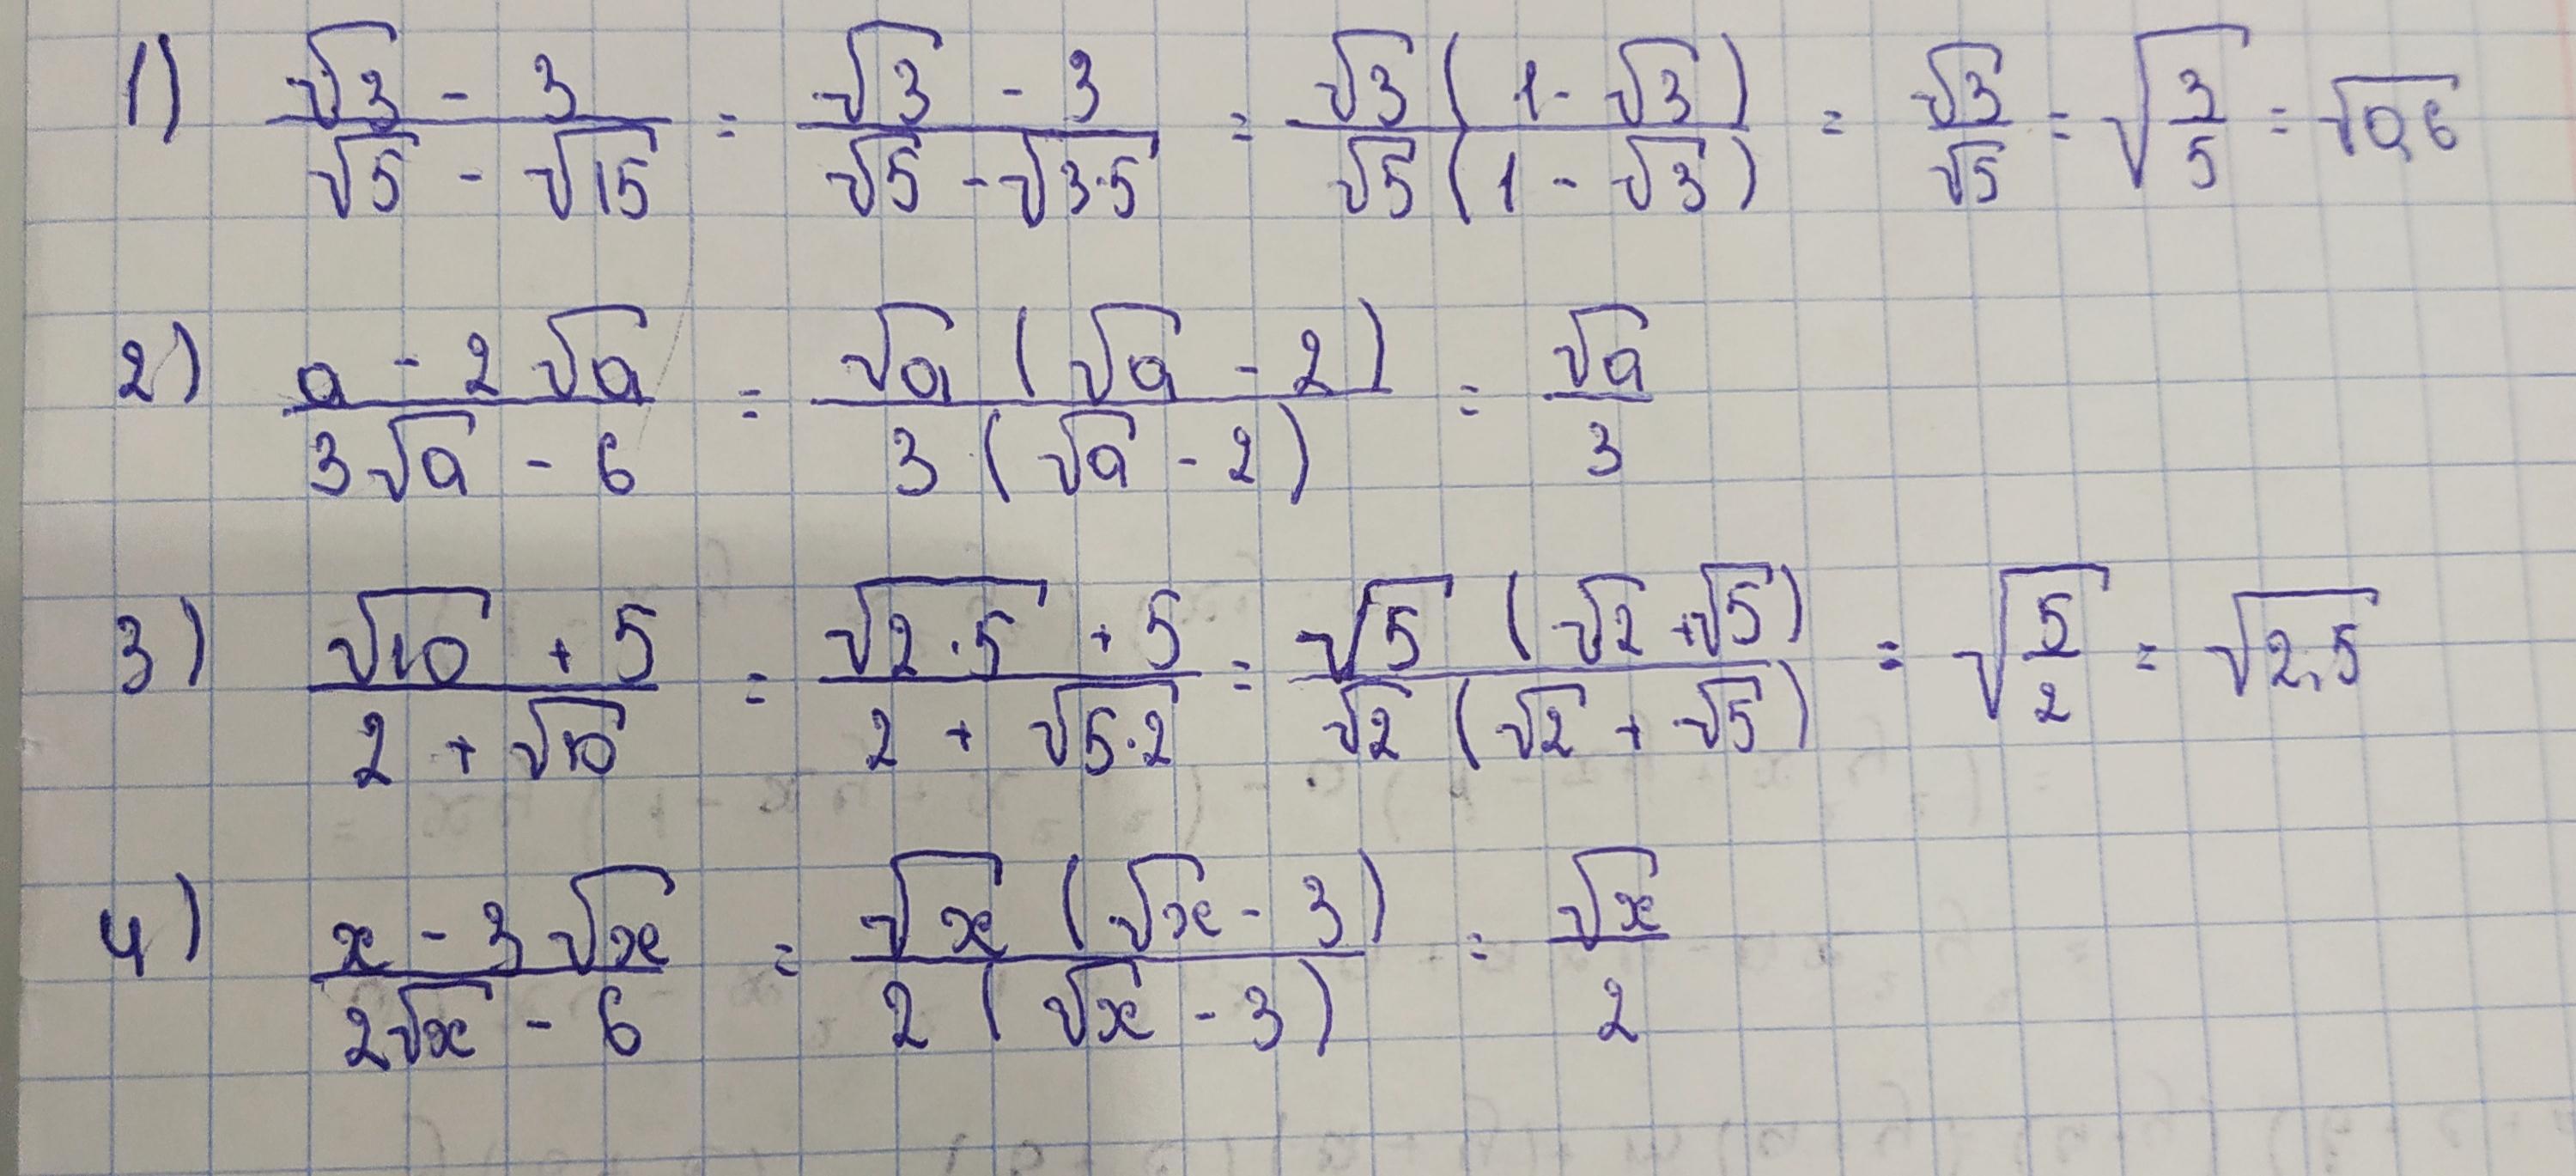 1) (√3 - 3)/(√5 - √15) = (√3 - 3)/(√5 - √(3·5)) = (√3(1 - √3))/(√5(1 - √3)) = √3/√5 = √(3/5) = √0,6
2) (a - 2√a)/(3√a - 6) = (√a(√a - 2))/(3(√a - 2)) = √a/3
3) (√10 + 5)/(2 + √10) = (√(2·5) + 5)/(2 + √(5·2)) = (√5(√2 + √5))/(√2(√2 + √5)) = √(5/2) = √2,5
4) (x - 3√x)/(2√x - 6) = (√x(√x - 3))/(2(√x - 3)) = √x/2